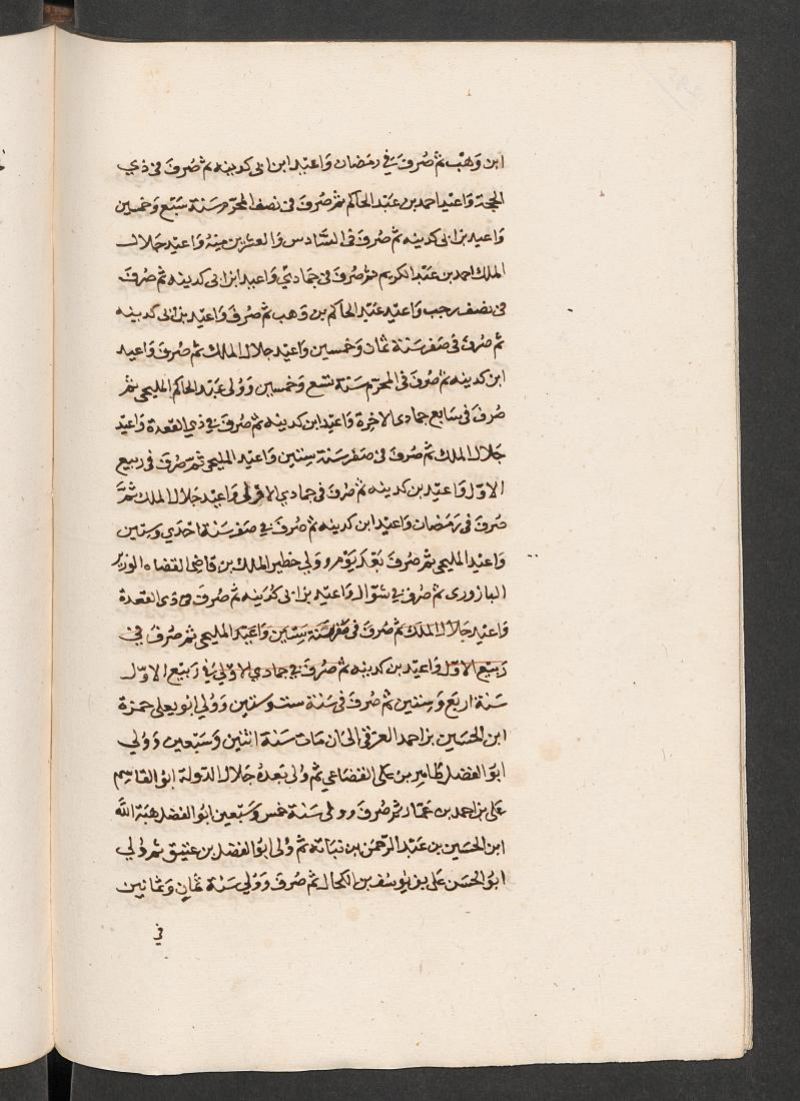 ابن وهب ثم صرف في رمضان واعيد ابن ابى كدينه ثم صرف فى ذي
الحجة واعيد احمد بن عبد الحاكم ثم صرف فى نصف المحرم سنة سبع وخمسين
واعيد بن ابى كدينه ثم صرف فى السادس والعشرين منه واعيد جلال
الملك احمد بن عبد الكريم ثم صرف فى جمادي واعيد ابن ابى كدينه ثم صرف
فى نصف رجب واعيد عبد الحاكم بن وهب ثم صرف واعيد بن ابى كدينه
ثم صرف فى صفر سنة ثمان وخمسين واعيد جلال الملك ثم صرف واعيد
ابن كدينه ثم صرف فى المحرم سنة تسع وخمسين وولى عبد الحاكم المليجى ثم
صرف فى سابع جمادى الاخرة واعيد ابن كدينه ثم صرف في ذي القعدة واعيد
جلال الملك ثم صرف فى صفر سنة ستين واعيد المليجى ثم صرف فى ربيع
الاول واعيد بن كدينه ثم صرف فى جمادي الاولى واعيد جلال الملك ثم
صرف فى رمضان واعيد ابن كدينه ثم صرف في صفر سنة احدي وستين
واعيد المليجى ثم صرف بعد يوم وولي خطير الملك بن قاضى القضاه الوزير
اليازورى ثم صرف في شوال واعيد بن ابى كدينه ثم صرف فى ذى القعدة
واعيد جلال الملك ثم صرف فى صفر سنة ستين واعيد المليجى ثم صرف في
ربيع الاول واعيد بن كدينه ثم صرف في جمادي الاولي في ربيع الاول
سنة اربع وستين ثم صرف فى سنة ست وستين وولي ابو يعلى حمزة
ابن الحسين بن احمد العرقى الى ان مات سنة اثنين وسبعين وولي
ابو الفضل طاهر بن على القضاعي ثم ولى بعده جلال الدولة ابو القاسم
على بن احمد بن عمار ثم صرف وولى سنة خمس وسبعين ابو الفضل هبة الله
ابن الحسين بن عبد الرحمن بن نباته ثم ولى ابو الفضل بن عتيق ثم ولي
ابو الحسن على بن يوسف بن الكحال ثم صرف وولي سنة ثمان وثمانين
في